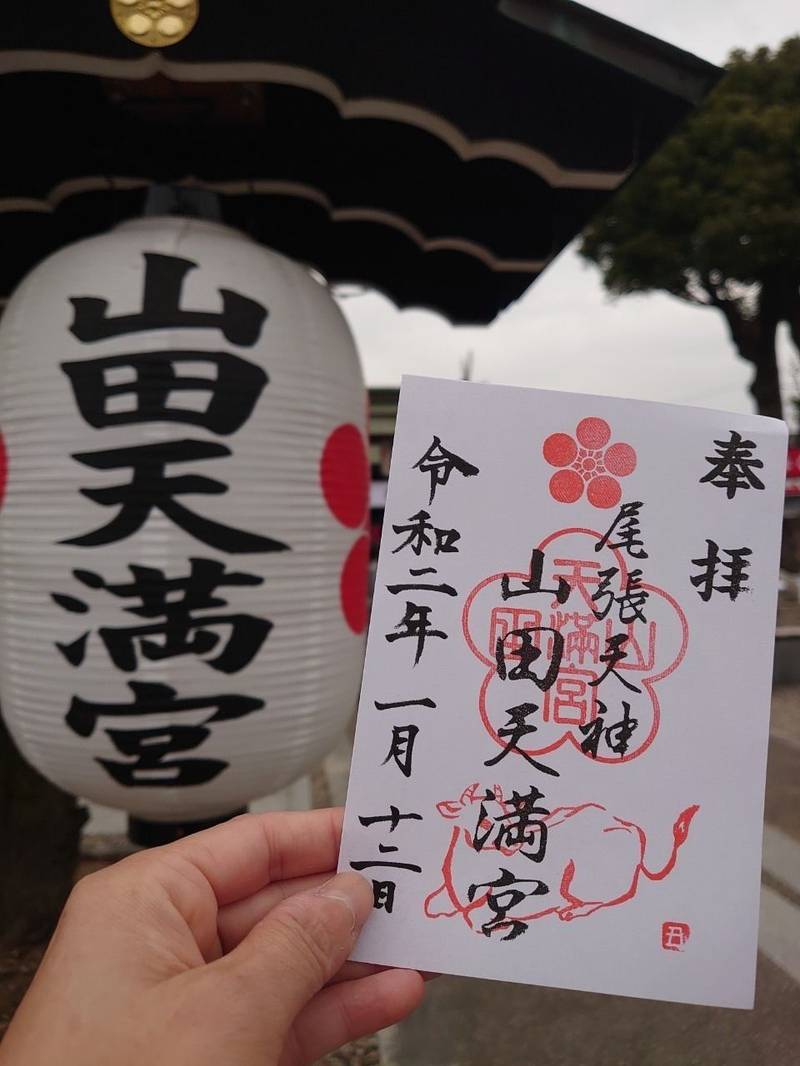 山田天満宮
奉拝
尾張天神
山田天満宮
令和二年一月十二日
山田
天満宮
丑